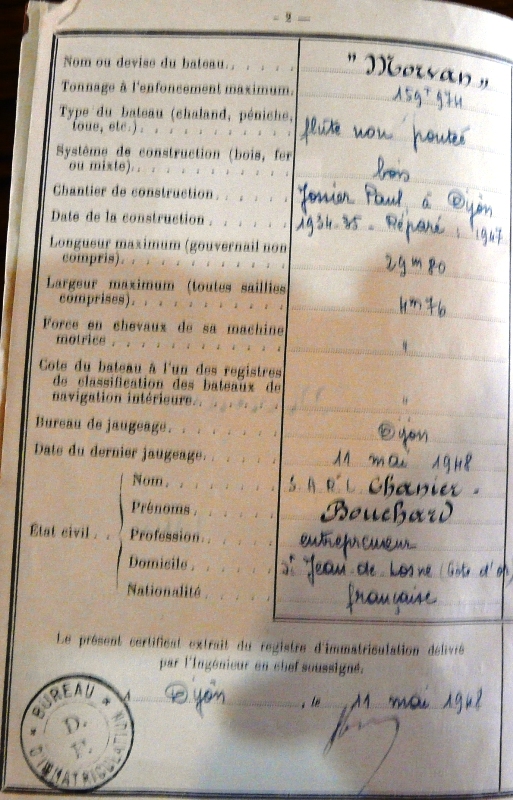 — 2 —
Nom ou devise du bateau. . . . . . "Morvan"
Tonnage à l'enfoncement maximum. 159T974
Type du bateau (chaland, péniche,
toue, etc.). . . . . . . . . . . flûte non ponté
Système de construction (bois, fer
ou mixte). . . . . . . . . . . bois
Chantier de construction. . . . . Paul, à Dijon
Date de la construction. . . . . 1934-35 - Réparé : 1947
Longueur maximum (gouvernail non
compris). . . . . . . . . . . 29m80
Largeur maximum (toutes saillies
comprises). . . . . . . . . . . 4m76
Force en chevaux de sa machine
motrice . . . . . . . . . . . "
Cote du bateau à l'un des registres
de classification des bateaux de
navigation intérieure. . . . . . "
Bureau de jaugeage. . . . . . . Dijon
Date du dernier jaugeage. . . . . 11 mai 1948
État civil. .
Nom. . . . . . S.A.R.L Chanier -
Prénoms. . . . . Bouchard
Profession. . . . . entrepreneur
Domicile. . . . . St Jean de Losne (Côte d'or)
Nationalité. . . . . française
Le présent certificat extrait du registre d'immatriculation délivré
par l'Ingénieur en chef soussigné.
A Dijon , le 11 mai 1948
* BUREAU *
D.
F.
D'IMMATRICULATION